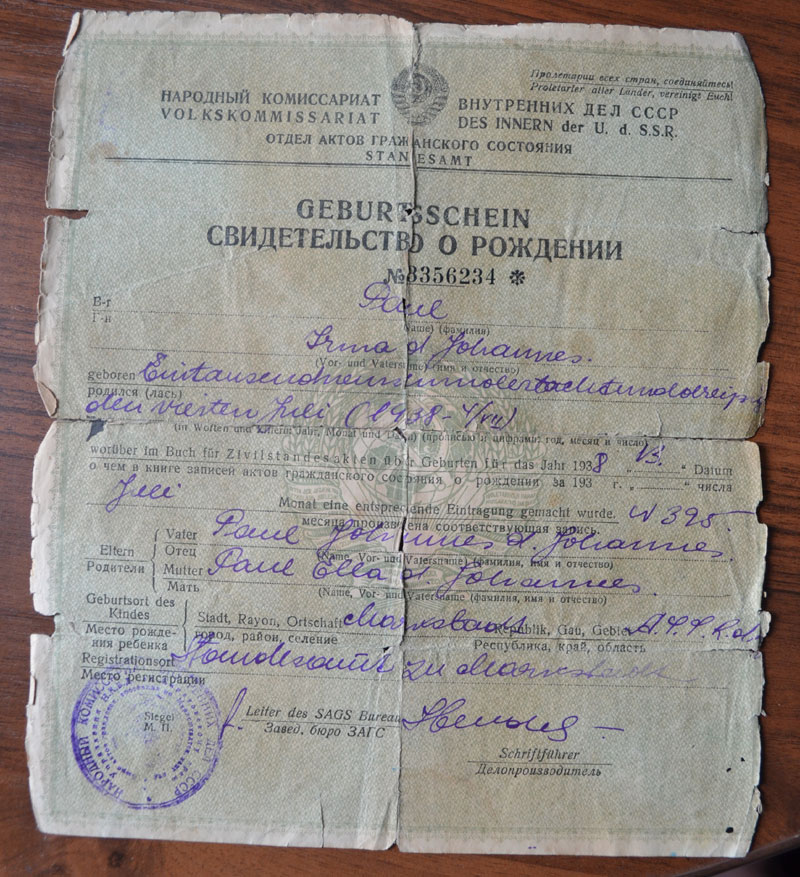 Пролетарии всех стран, соединяйтесь!
Proletarier aller Länder, vereinigt Euch!
НАРОДНЫЙ КОМИССАРИАТ ВНУТРЕННИХ ДЕЛ СССР
VOLKSKOMMISSARIAT DES INNERN der U. d. S.S.R.
ОТДЕЛ АКТОВ ГРАЖДАНСКОГО СОСТОЯНИЯ
STANDESAMT
GEBURTSSCHEIN
СВИДЕТЕЛЬСТВО О РОЖДЕНИИ
№ 3356234 *
B-r Paul
Г-н (Name) (фамилия)
Irma d Johannes.
(Vor- und Vatersname) (имя и отчество)
geboren Eintausendneunhundertachtunddreißig
родился (лась)
den vierten Juli (1938-4/VII)
(in Worten und Ziffern: Jahr, Monat und Datum) (прописью и цифрами: год, месяц и число)
worüber im Buch für Zivilstandesakten über Geburten für das Jahr 1938 „ 13. “ Datum
о чем в книге записей актов гражданского состояния о рождении за 193 г. „ “ числа
Juli Monat eine entsprechende Eintragung gemacht wurde. N 395.
месяца произведена соответствующая запись.
Eltern
Родители
Vater Paul Johannes d. Johannes.
Отец (Name, Vor- und Vatersname) (фамилия, имя и отчество)
Mutter Paul Ella d Johannes.
Мать (Name, Vor- und Vatersname) (фамилия, имя и отчество)
Geburtsort des Kindes
Место рождения ребенка
Stadt, Rayon, Ortschaft Marxstadt Republik, Gau, Gebiet A.S.S.R.d.
город, район, селение Республика, край, область
Registrationsort Standesamt zu Marxstadt
Место регистрации
Siegel
М. П.
Leiter des SAGS Bureau
Завед. бюро ЗАГС
Schriftführer
Делопроизводитель
НАРОДНЫЙ КОМИССАРИАТ ВНУТРЕННИХ ДЕЛ СССР